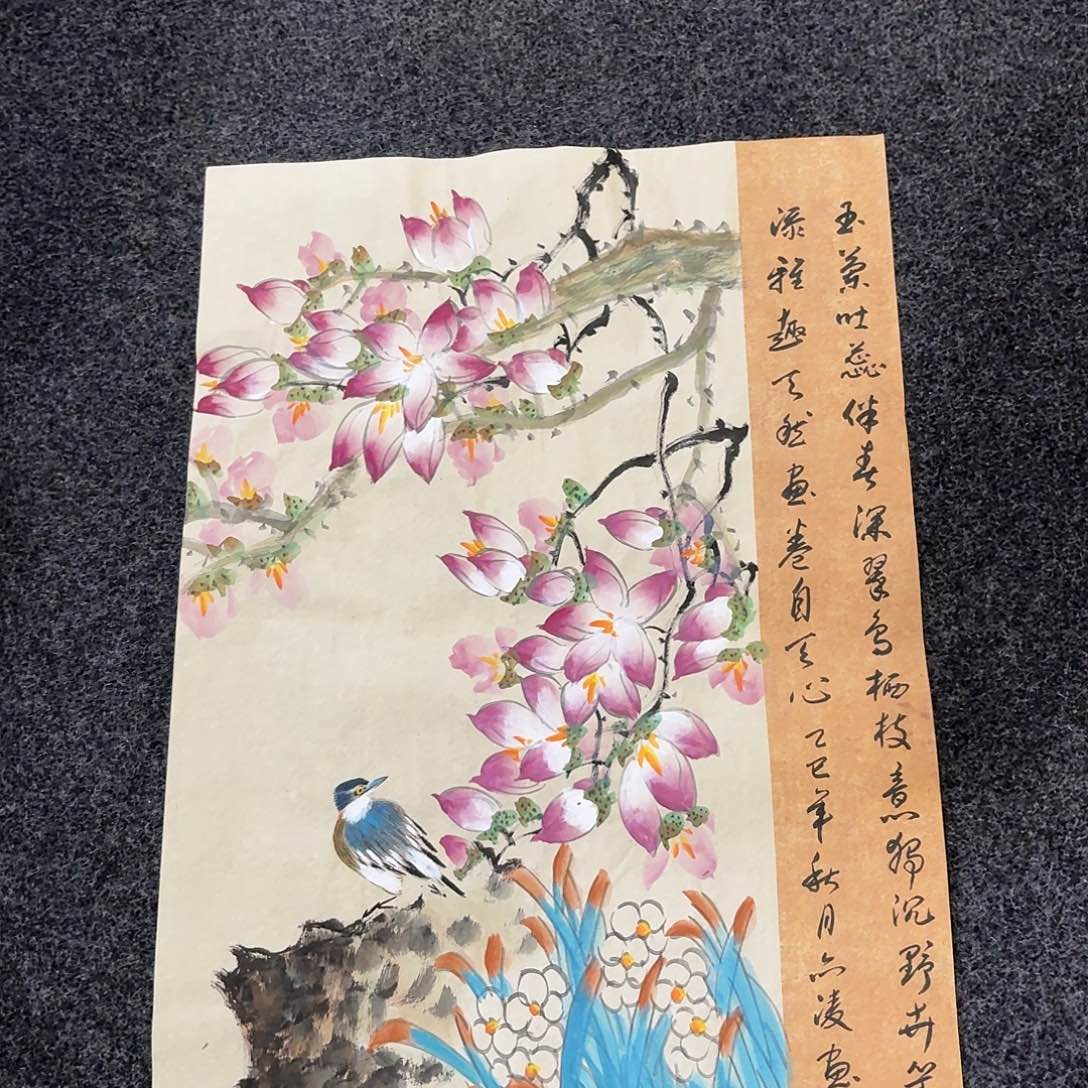 玉兰吐蕊伴春深翠鸟栖枝意独沉野卉
添雅趣天然画卷自天心乙巳年秋月六凌画